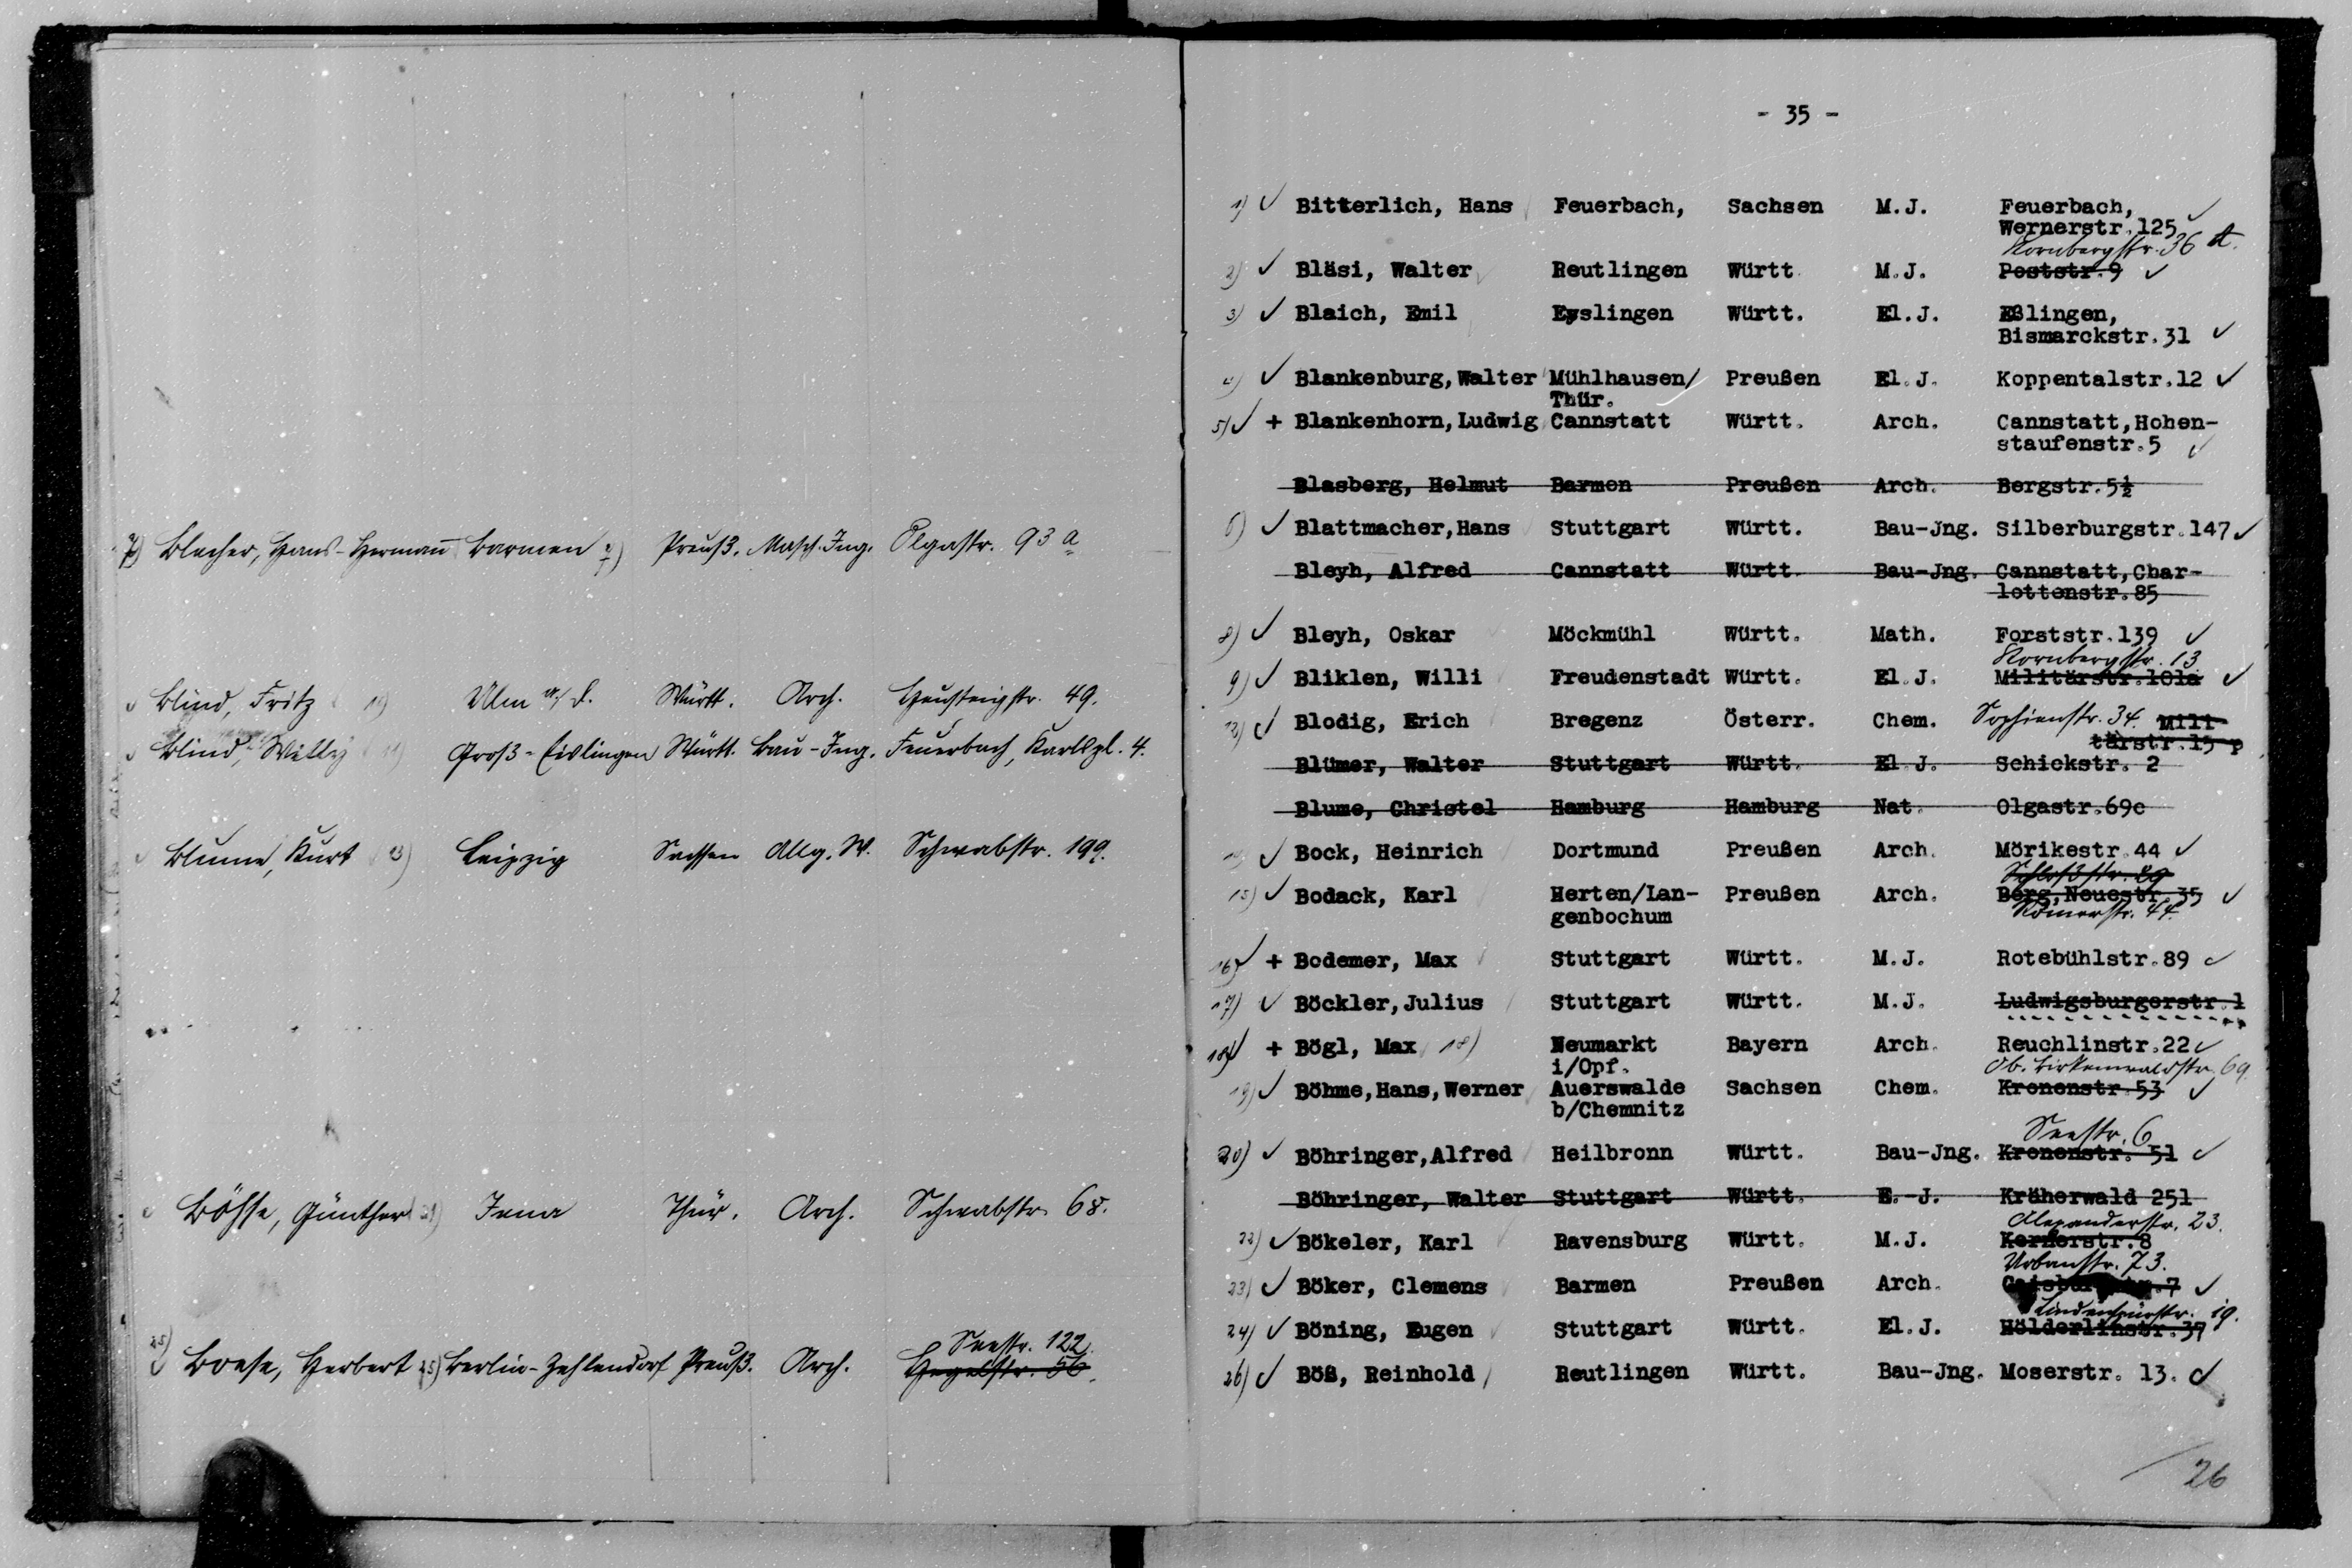 7) Blecher, Hans-Hermann Barmen 7) Preuß. Masch. Ing. Olgastr. 93 a
Blind, Fritz 10) Ulm a/D. Württ. Arch. Heusteigstr. 49.
Blind, Willy 11) Groß-Eislingen Württ. Bau-Ing. Feuerbach, Karlspl. 4.
Blume, Kurt 13) Leipzig Sachsen Allg. W. Schwabstr. 199.
Böhse, Günther 21) Jena Thür. Arch. Schwabstr. 68.
Seestr. 122.
25) Boese, Herbert 25) Berlin-Zehlendorf Preuß. Arch. Hegelstr. 56.
- 35 -
1) ✓ Bitterlich, Hans Feuerbach, Sachsen M.J. Feuerbach, ✓
Wernerstr.125
Kornbergstr. 36 A.
2) ✓ Bläsi, Walter Reutlingen Württ M.J. Poststr.9 ✓
3) ✓ Blaich, Emil Eyslingen Württ. El.J. Eßlingen,
Bismarckstr.31 ✓
4) ✓ Blankenburg,Walter Mühlhausen/ Preußen El.J. Koppentalstr.12 ✓
Thür.
5) ✓ + Blankenhorn,Ludwig Cannstatt Württ. Arch. Cannstatt,Hohen-
staufenstr.5 ✓
Blasberg, Helmut Barmen Preußen Arch. Bergstr.5½
6) ✓ Blattmacher,Hans Stuttgart Württ. Bau-Jng. Silberburgstr.147 ✓
Bleyh, Alfred Cannstatt Württ. Bau-Jng. Cannstatt,Char-
lottenstr.85
8) ✓ Bleyh, Oskar Möckmühl Württ. Math. Forststr.139 ✓
Kornbergstr. 13.
9) ✓ Bliklen, Willi Freudenstadt Württ. El.J. Militärstr.101a ✓
12) ✓ Blodig, Erich Bregenz Österr. Chem. Sophienstr. 34. Mili-
tärstr.15 p
Blümer, Walter Stuttgart Württ. El J. Schickstr. 2
Blume, Christel Hamburg Hamburg Nat. Olgastr.69c
✓ Bock, Heinrich Dortmund Preußen Arch. Mörikestr.44 ✓
Schloßstr. 89
15) ✓ Bodack, Karl Herten/Lan- Preußen Arch. Berg,Neuestr.35 ✓
genbochum Römerstr. 44.
16) ✓ + Bodemer, Max Stuttgart Württ. M.J. Rotebühlstr.89 ✓
17) ✓ Böckler,Julius Stuttgart Württ. M.J. Ludwigsburgerstr.1
18) ✓ + Bögl, Max 18) Neumarkt Bayern Arch. Reuchlinstr.22 ✓
i/Opf. Ob. Birkenwaldstr. 69.
19) ✓ Böhme,Hans,Werner Auerswalde Sachsen Chem. Kronenstr.53 ✓
b/Chemnitz
Seestr. 6
20) ✓ Böhringer,Alfred Heilbronn Württ. Bau-Jng. Kronenstr. 51 ✓
Böhringer, Walter Stuttgart Württ. E.-J. Kräherwald 251
Alexanderstr. 23.
22) ✓ Bökeler, Karl Ravensburg Württ. M.J. Kernerstr.8
Urbanstr. 73.
23) ✓ Böker, Clemens Barmen Preußen Arch. 7 ✓
Lindenspürstr. 19.
24) ✓ Böning, Eugen Stuttgart Württ. El.J. Hölderlinstr.37
26) ✓ Böß, Reinhold Reutlingen Württ. Bau-Jng. Moserstr. 13. ✓
26